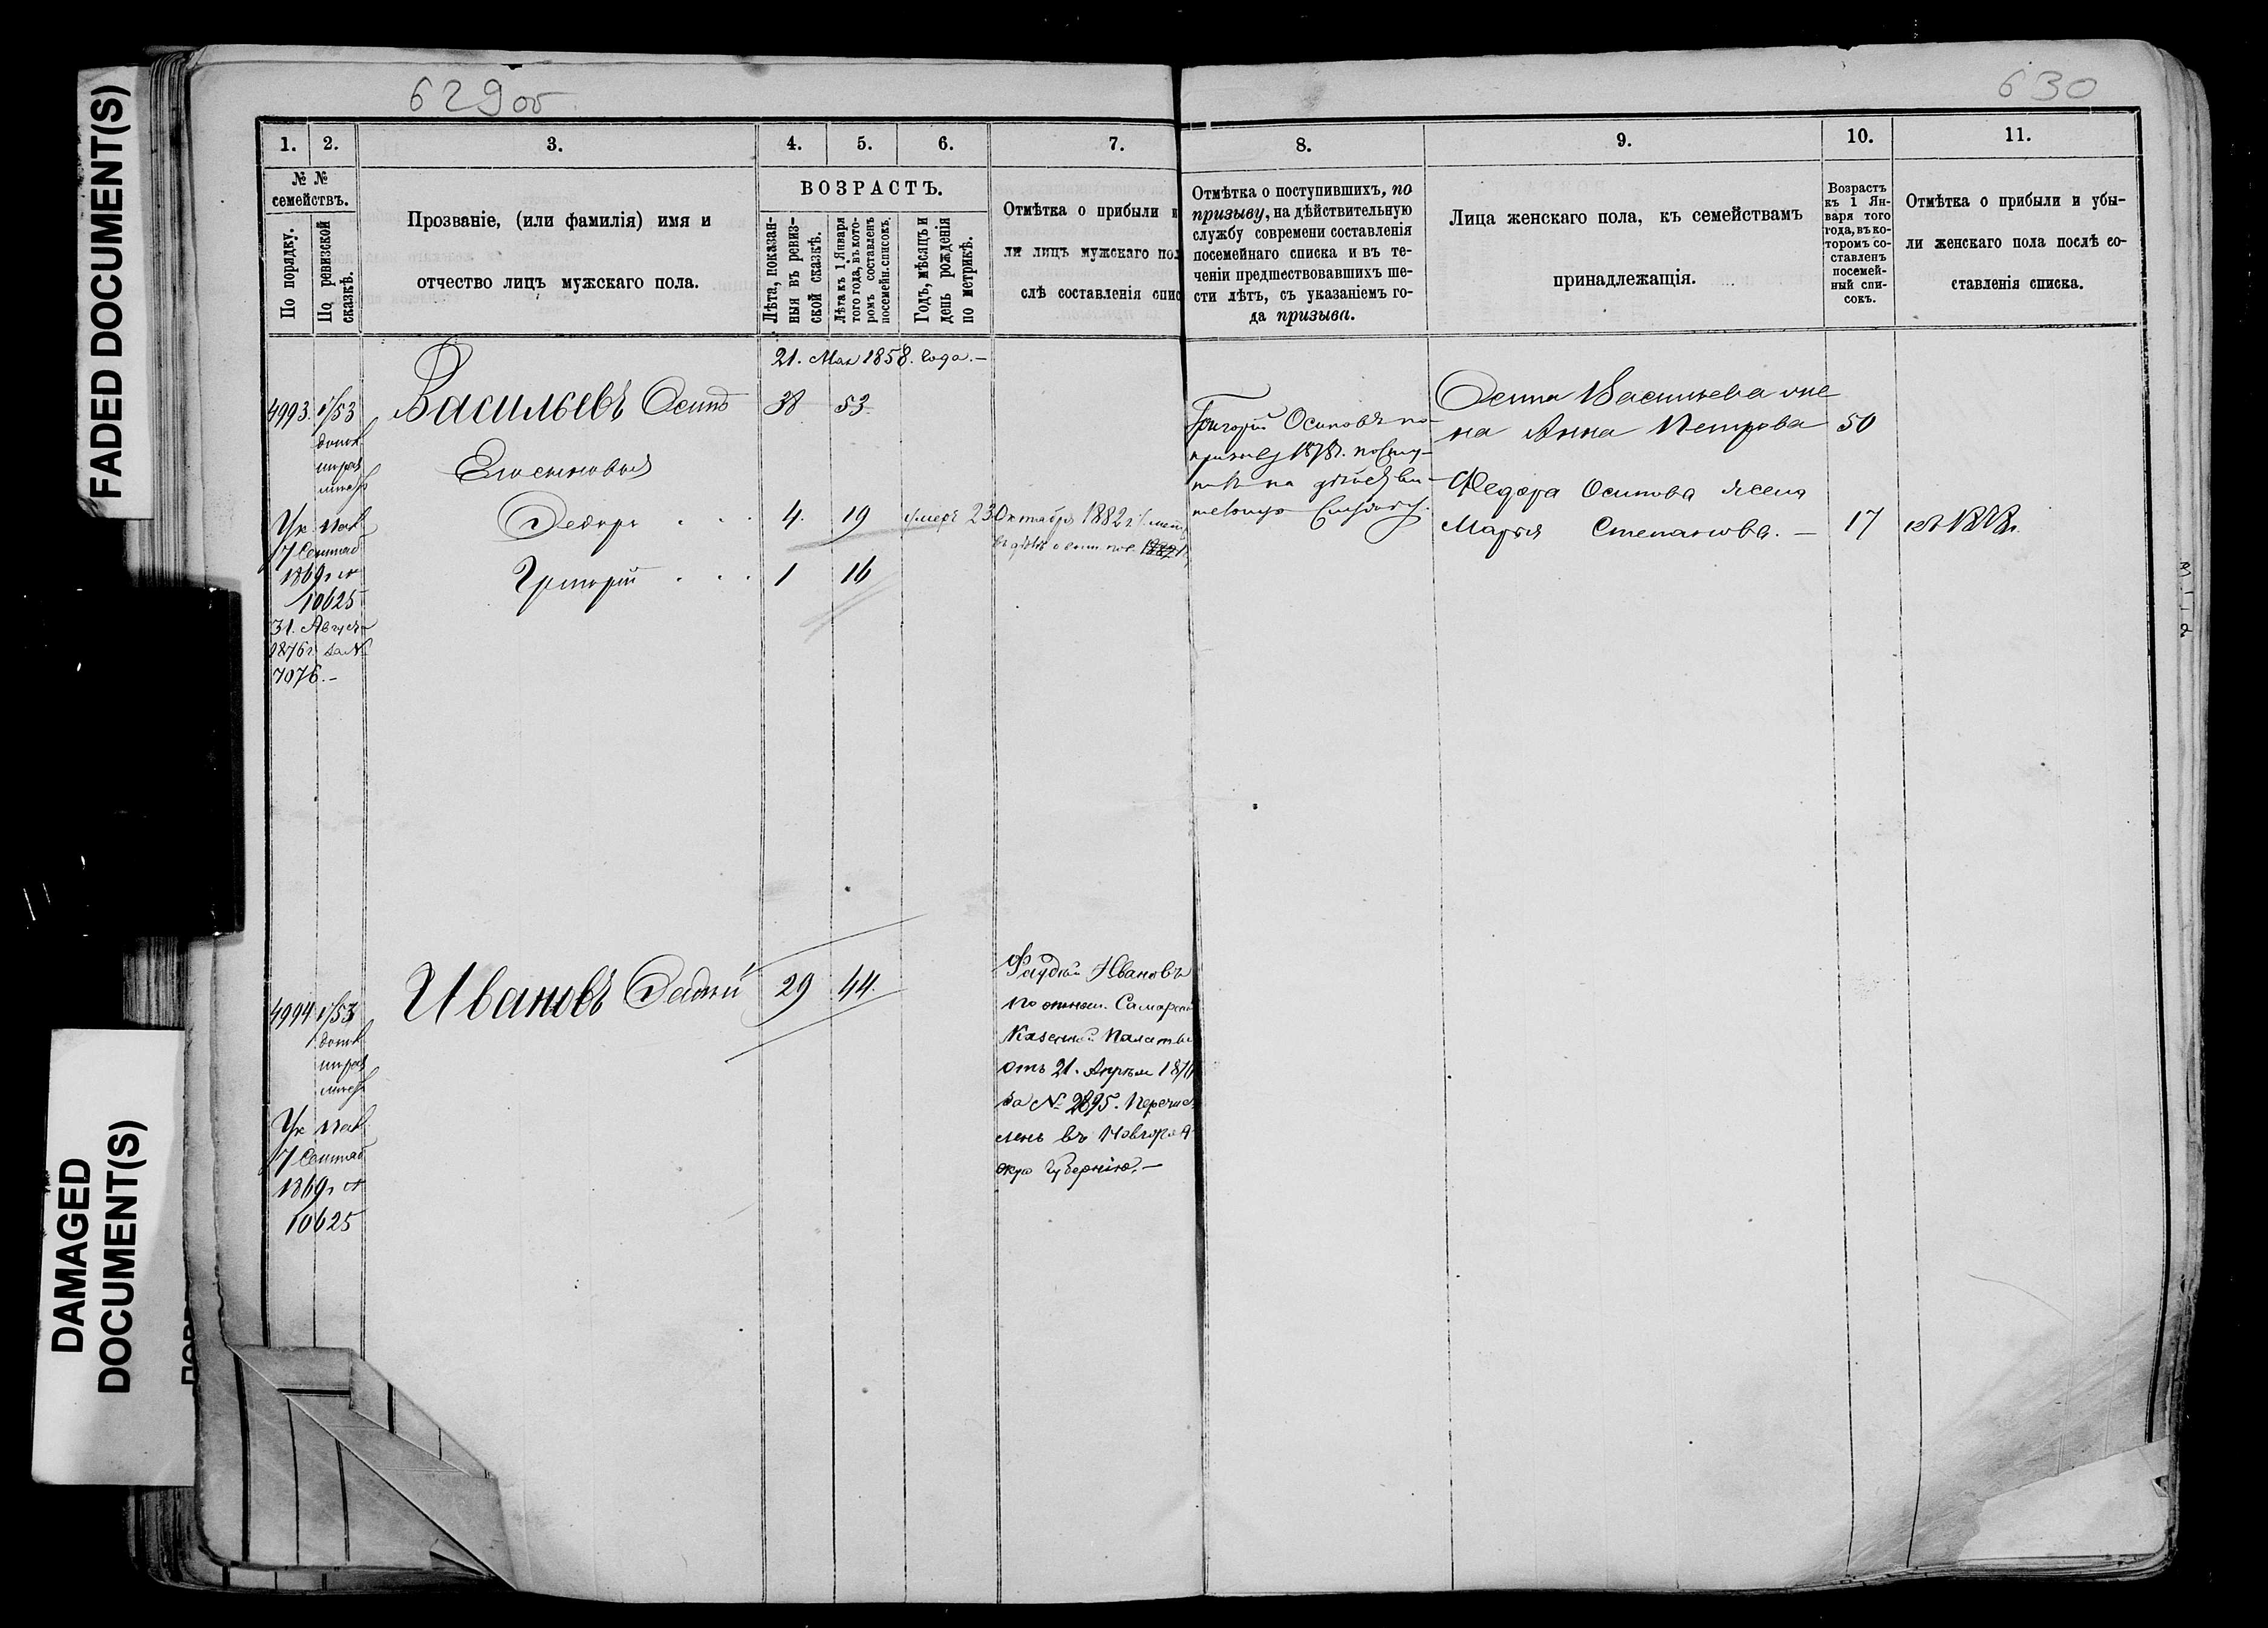 FADED DOCUMENT(S)
DAMAGED
DOCUMENT(S)
629об
630
1.
2.
3.
4.
5.
6.
7.
8.
9.
10.
11.
№ №
семействъ.
По порядку.
По ревизской
сказкѣ.
Прозваніе, (или фамилія) имя и
отчество лицъ мужскаго пола.
ВОЗРАСТЪ.
Лѣта, показан-
ныя въ ревиз-
ской сказкѣ.
Лѣта къ 1 Января
того года, въ кото-
ромъ составленъ
посемейн. списокъ.
Годъ, мѣсяцъ и
день рожденія
по метрикѣ.
Отмѣтка о прибыли и
ли лицъ мужскаго пол
слѣ составленія спис
Отмѣтка о поступившихъ, по
призыву, на дѣйствительную
службу современи составленія
посемейнаго списка и въ те-
ченіи предшествовавшихъ ше-
сти лѣтъ, съ указаніемъ го-
да призыва.
Лица женскаго пола, къ семействамъ
принадлежащія.
Возрастъ
къ 1 Ян-
варя того
года, въ ко-
торомъ со-
ставленъ
посемей-
ный спи-
сокъ.
Отмѣтка о прибыли и убы-
ли женскаго пола послѣ со-
ставленія списка.
21. Мая 1858. года.—
4993. 1/53
Васильевъ Осипъ
38 53
Ук. пал.
7 Сентяб
1869 г. №
10625
31. Августа
1876 г. за №
7076.—
Федоръ . . . 4. 19
умеръ 23 Октября 1882 г.
Григорій . . . 1 16
Григорій Осиповъ по
призыву 1878 г. посту-
пилъ на дѣйстви-
тельную службу.
Осипа Васильева же
на Анна Петрова 50
Федора Осипова жена
Марья Степанова.— 17
4994 1/53
Ивановъ
29 44.
Ук. пал.
7 Сентяб
1869 г. №
10625
Ивановъ
по отнош. Самарской
Казенной Палаты
отъ 21. Апрѣля
за № 2895. Перечис
ленъ въ Новгород
скую Губернію.—